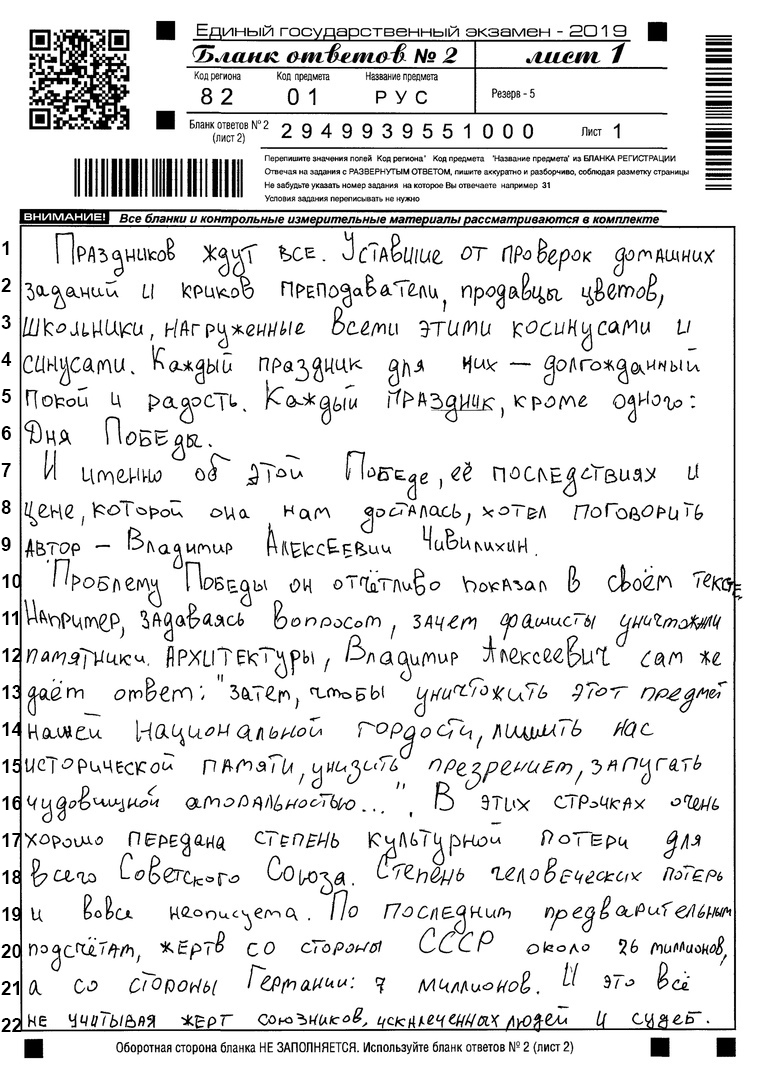 Единый государственный экзамен - 2019
Бланк ответов № 2 лист 1
Код региона Код предмета Название предмета
82 01 РУС Резерв - 5
Бланк ответов № 2 (лист 2) 2949939551000 Лист 1
Перепишите значения полей Код региона" Код предмета 'Название предмета' из БЛАНКА РЕГИСТРАЦИИ
Отвечая на задания с РАЗВЕРНУТЫМ ОТВЕТОМ, пишите аккуратно и разборчиво, соблюдая разметку страницы
Не забудьте указать номер задания на которое Вы отвечаете например 31
Условия задания переписывать не нужно
ВНИМАНИЕ! Все бланки и контрольные измерительные материалы рассматриваются в комплекте
1 Праздников ждут все. Уставшие от проверок домашних
2 заданий и криков преподаватели, продавцы цветов,
3 школьники, нагруженные всеми этими косинусами и
4 синусами. Каждый праздник для них — долгожданный
5 покой и радость. Каждый праздник, кроме одного:
6 Дня Победы.
7 И именно об этой Победе, её последствиях и
8 цене, которой она нам досталась, хотел поговорить
9 автор – Владимир Алексеевич Чивилихин.
10 Проблему Победы он отчётливо показал в своём тексте.
11 Например, задаваясь вопросом, зачем фашисты уничтожали
12 памятники архитектуры, Владимир Алексеевич сам же
13 даёт ответ: "Затем, чтобы уничтожить этот предмет
14 нашей национальной гордости, лишить нас
15 исторической памяти, унизить презрением, запугать
16 чудовищной аморальностью...". В этих строчках очень
17 хорошо передана степень культурной потери для
18 всего Советского Союза. Степень человеческих потерь
19 и вовсе неописуема. По последним предварительным
20 подсчётам, жертв со стороны СССР около 26 миллионов,
21 а со стороны Германии: 7 миллионов. И это всё
22 не учитывая жерт союзников, искалеченных людей и судеб.
Оборотная сторона бланка НЕ ЗАПОЛНЯЕТСЯ. Используйте бланк ответов № 2 (лист 2)